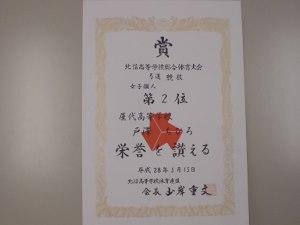 賞
北信高等学校総合体育大会
弓道 競技
女子個人
第2位
屋代高等学校
戸澤 ちひろ
栄誉を讃える
平成28年5月15日
北信高等学校体育連盟
会長 山岸重文